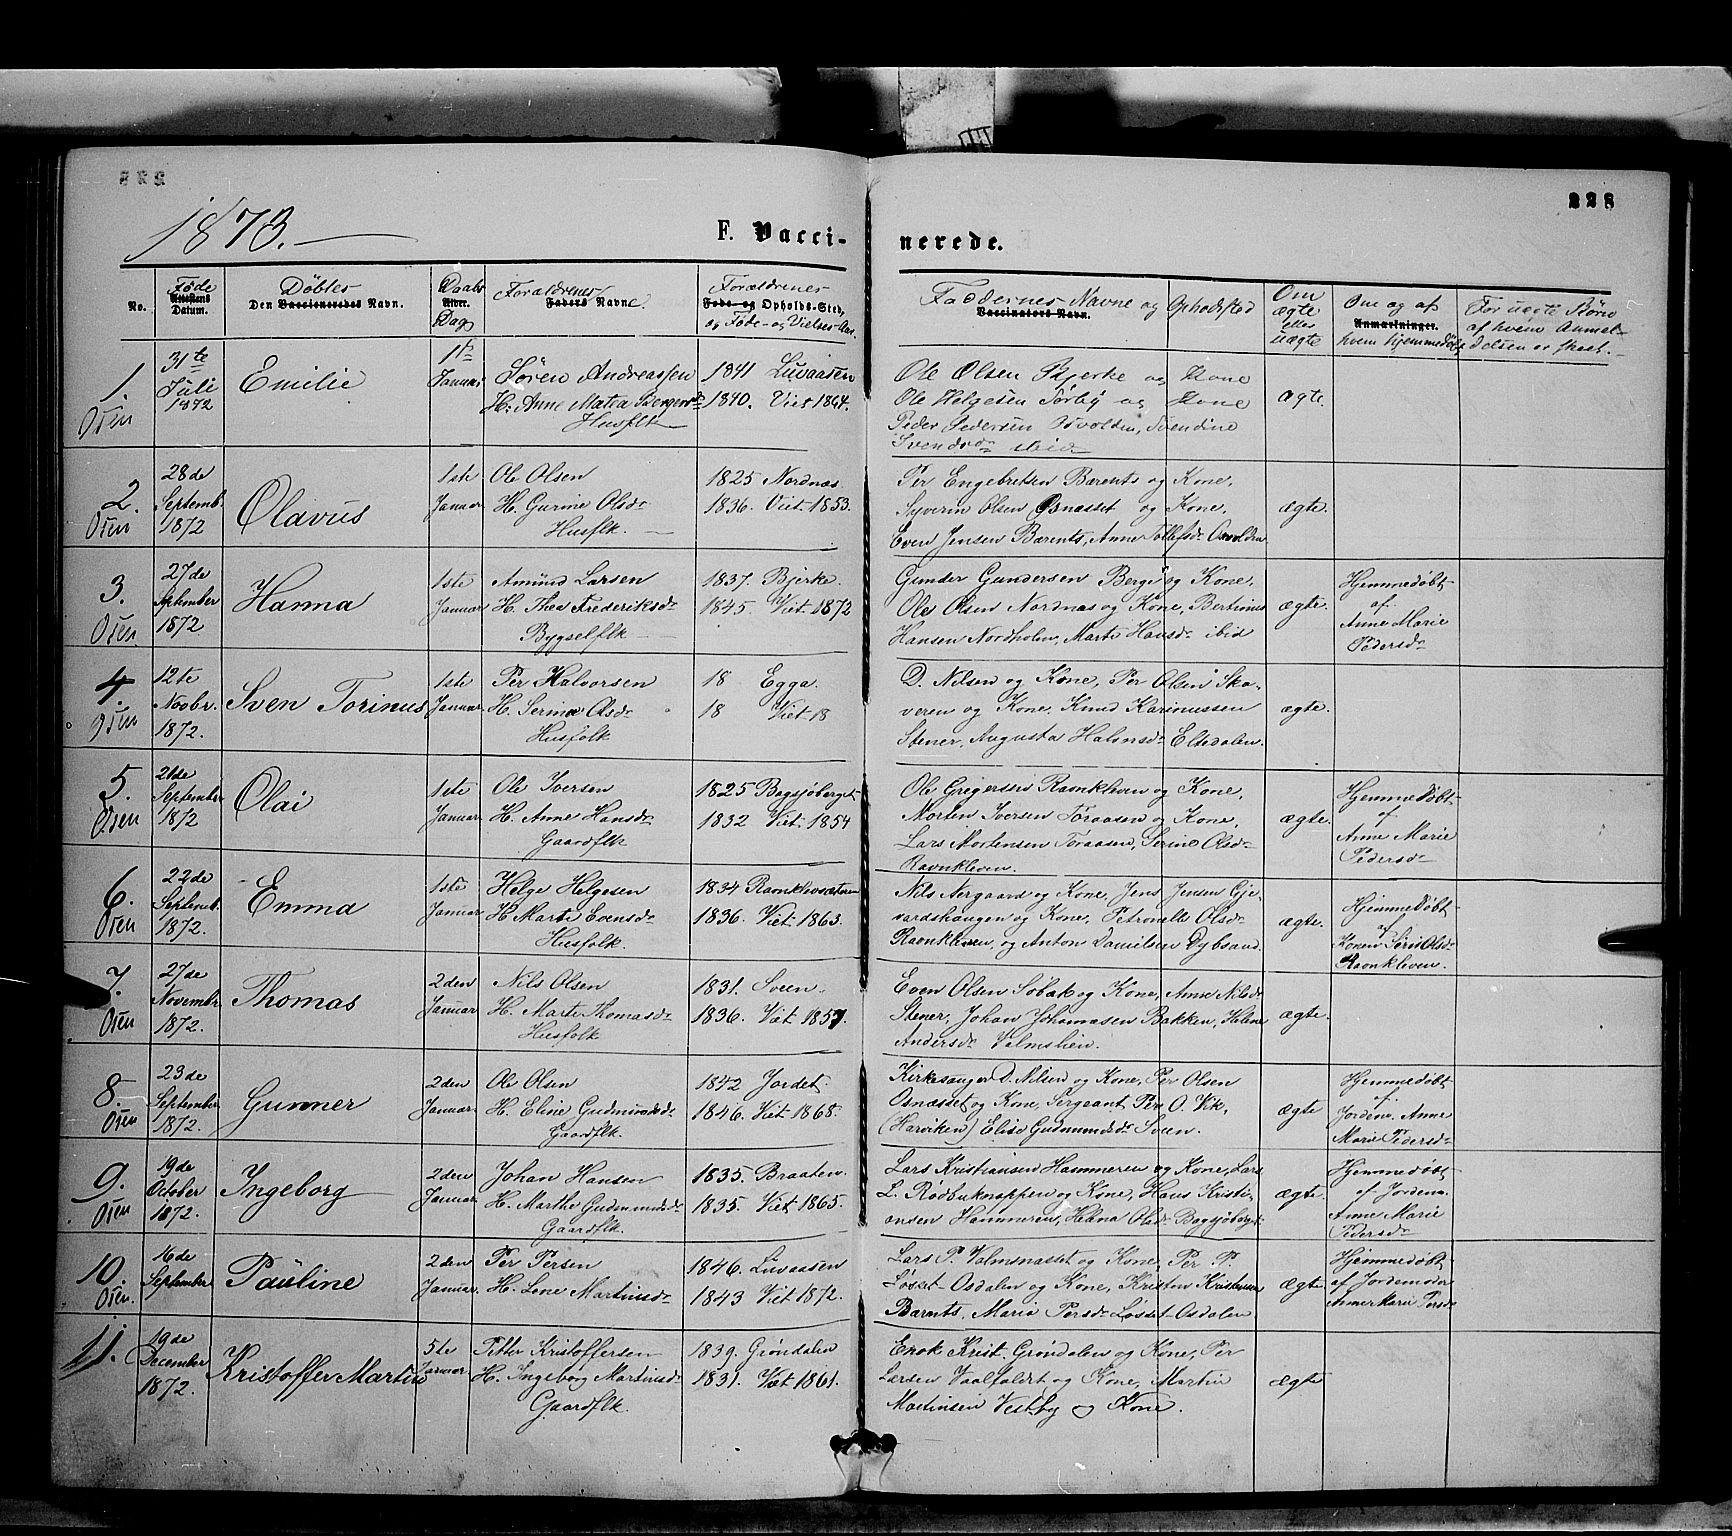 228
1873.
F. Vacci-
nerede.
No.
Føde
Attestens
Datum.
Døbtes
Den Vaccineredes Navn.
Daabs
Dag
Forældrenes
Faders Navne
Forældrenes
Føde- og Opholds-Sted,
og Føde- og Vielses-Aar.
Faddernes Navne og Opholdsted
Vaccinators Navn.
Om
ægte
eller
uægte
Om og af
Anmærkninger.
hvem hjemmedøbt
For uægte Børn
af hvem Anmel-
delsen er skeet.
1.
Osen
31te
Juli
1872
Emilie
1ste
Januar
Søren Andreassen
H. Anne Matea
Husflk
1841 Livaasen
1840. Viet 1864.
Ole Olsen Bjerke og Kone
Ole Helgesen Torby og Kone
Peder Pedersen Osvolden, Svendine
Svendsdr ibid
ægte.
2.
Osen
28de
Septemb.
1872
Olavus
1ste
Januar
Ole Olsen
H. Gurine Olsdr
Husflk.
1825 Nordnæs
1836. Viet 1853.
Per Engebretsen Bærents og Kone,
Syverin Olsen Osnæsset og Kone,
Even Jensen Bærents, Anne Tollefsdr Osvolden
ægte.
3.
Osen
27de
September
1872
Hanna
1ste
Januar
Amund Larsen
H. Thea Frederiksdr
Bygselflk
1837. Bjerke.
1845. Viet 1872
Gunder Gundersen Berge og Kone,
Ole Olsen Nordnæs og Kone, Bertinus
Hansen Nordholen, Marte Hansdr ibid
ægte.
Hjemmedøbt
af
Anne Marie
Pedersdr
4.
Osen
12te
Novbr.
1872.
Sven Torinus
1ste
Januar.
Per Halvorsen
H. Serine Olsdr
Husfolk
18 Egga.
18 Viet 18
D. Nilsen og Kone, Per Olsen Ska-
veren og Kone, Knud Karinussen
Stener, Augusta Halvorsdr Eltedalen.
ægte.
5.
Osen
21de
September
1872
Olai
1ste
Januar.
Ole Iversen
H. Anne Hansdr
Gaardflk
1825 Bagsjøberget
1832 Viet 1854
Ole Gregersen Ravnkleven og Kone,
Morten Iversen Toraasen og Kone,
Lars Mortensen Toraasen, Serine Olsdr
Ravnkleven.
ægte.
Hjemmedøbt
af
Anne Marie
Pedersdr
6.
Osen
22de
Septemb.
1872.
Emma
1ste
Januar
Helge Helgesen
H. Marte Evensdr
Husfolk.
1834 Ravnklevsæteren
1836. Viet 1863.
Nils Nergaard og Kone, Jens Jensen Gje-
vardshaugen og Kone, Petronelle Olsdr
Ravnkleven, og Anton Danielsen Dybsand.
ægte.
Hjemmedøbt
af
Konen Siri Olsdr
Ravnkleven.
7.
Osen
27de
Novembr.
1872.
Thomas
2den
Januar
Nils Olsen
H. Marte Thomasdr
Husfolk
1831. Sveen.
1836. Viet 1857.
Even Olsen Søbak og Kone, Anne Nilsdr
Stener, Johan Johannesen Bakken, Helene
Andersdr Valmslien.
ægte.
8.
Osen
23de
September
1872.
Gunner
2den
Januar.
Ole Olsen
H. Eline Gudmundsdr
Gaardflk.
1842 Jordet.
1846. Viet 1868.
Kirkesanger D. Nilsen og Kone, Per Olsen
Osnæsset og Kone, Sergeant Per O. Vik,
(Harviken) Elise Gudmundsdr Sveen.
ægte
Hjemmedøbt
af
Jordem. Anne
Marie Pedersdr
9.
Osen
19de
October
1872.
Ingeborg
2den
Januar.
Johan Hansen
H. Marthe Gudmundsdr
Gaardflk.
1835. Braaten.
1835. Viet 1865.
Lars Kristiansen Hammeren og Kone, Lars
L. Rødbuknappen og Kone, Hans Kristi-
ansen Hammeren, Helena Olsdr Bagsjøberget
ægte.
Hjemmedøbt
af Jordem.
Anne Marie
Pedersdr
10.
Osen.
16de
September
Pauline
2den
Januar.
Per Persen
H. Lene Martinusdr
1846. Livaasen
1843 Viet 1872.
Lars P. Valmsnæsset og Kone, Per P.
Løsset-Osdalen og Kone, Kristen Kristensen
Bærents, Maria Persdr Løsset-Osdalen
ægte
Hjemmedøbt
af Jordemoder
Anne Marie Persdr
11.
19de
December
1872.
Kristoffer Martin
5te
Januar
Petter Kristoffersen
H. Ingeborg Martinusdr
Gaardflk.
1839. Grøndalen
1831. Viet 1861.
Enok Krist. Grøndalen og Kone, Per
Larsen Vaalfaldet og Kone, Martin
Martinsen Vestby og Kone.
ægte